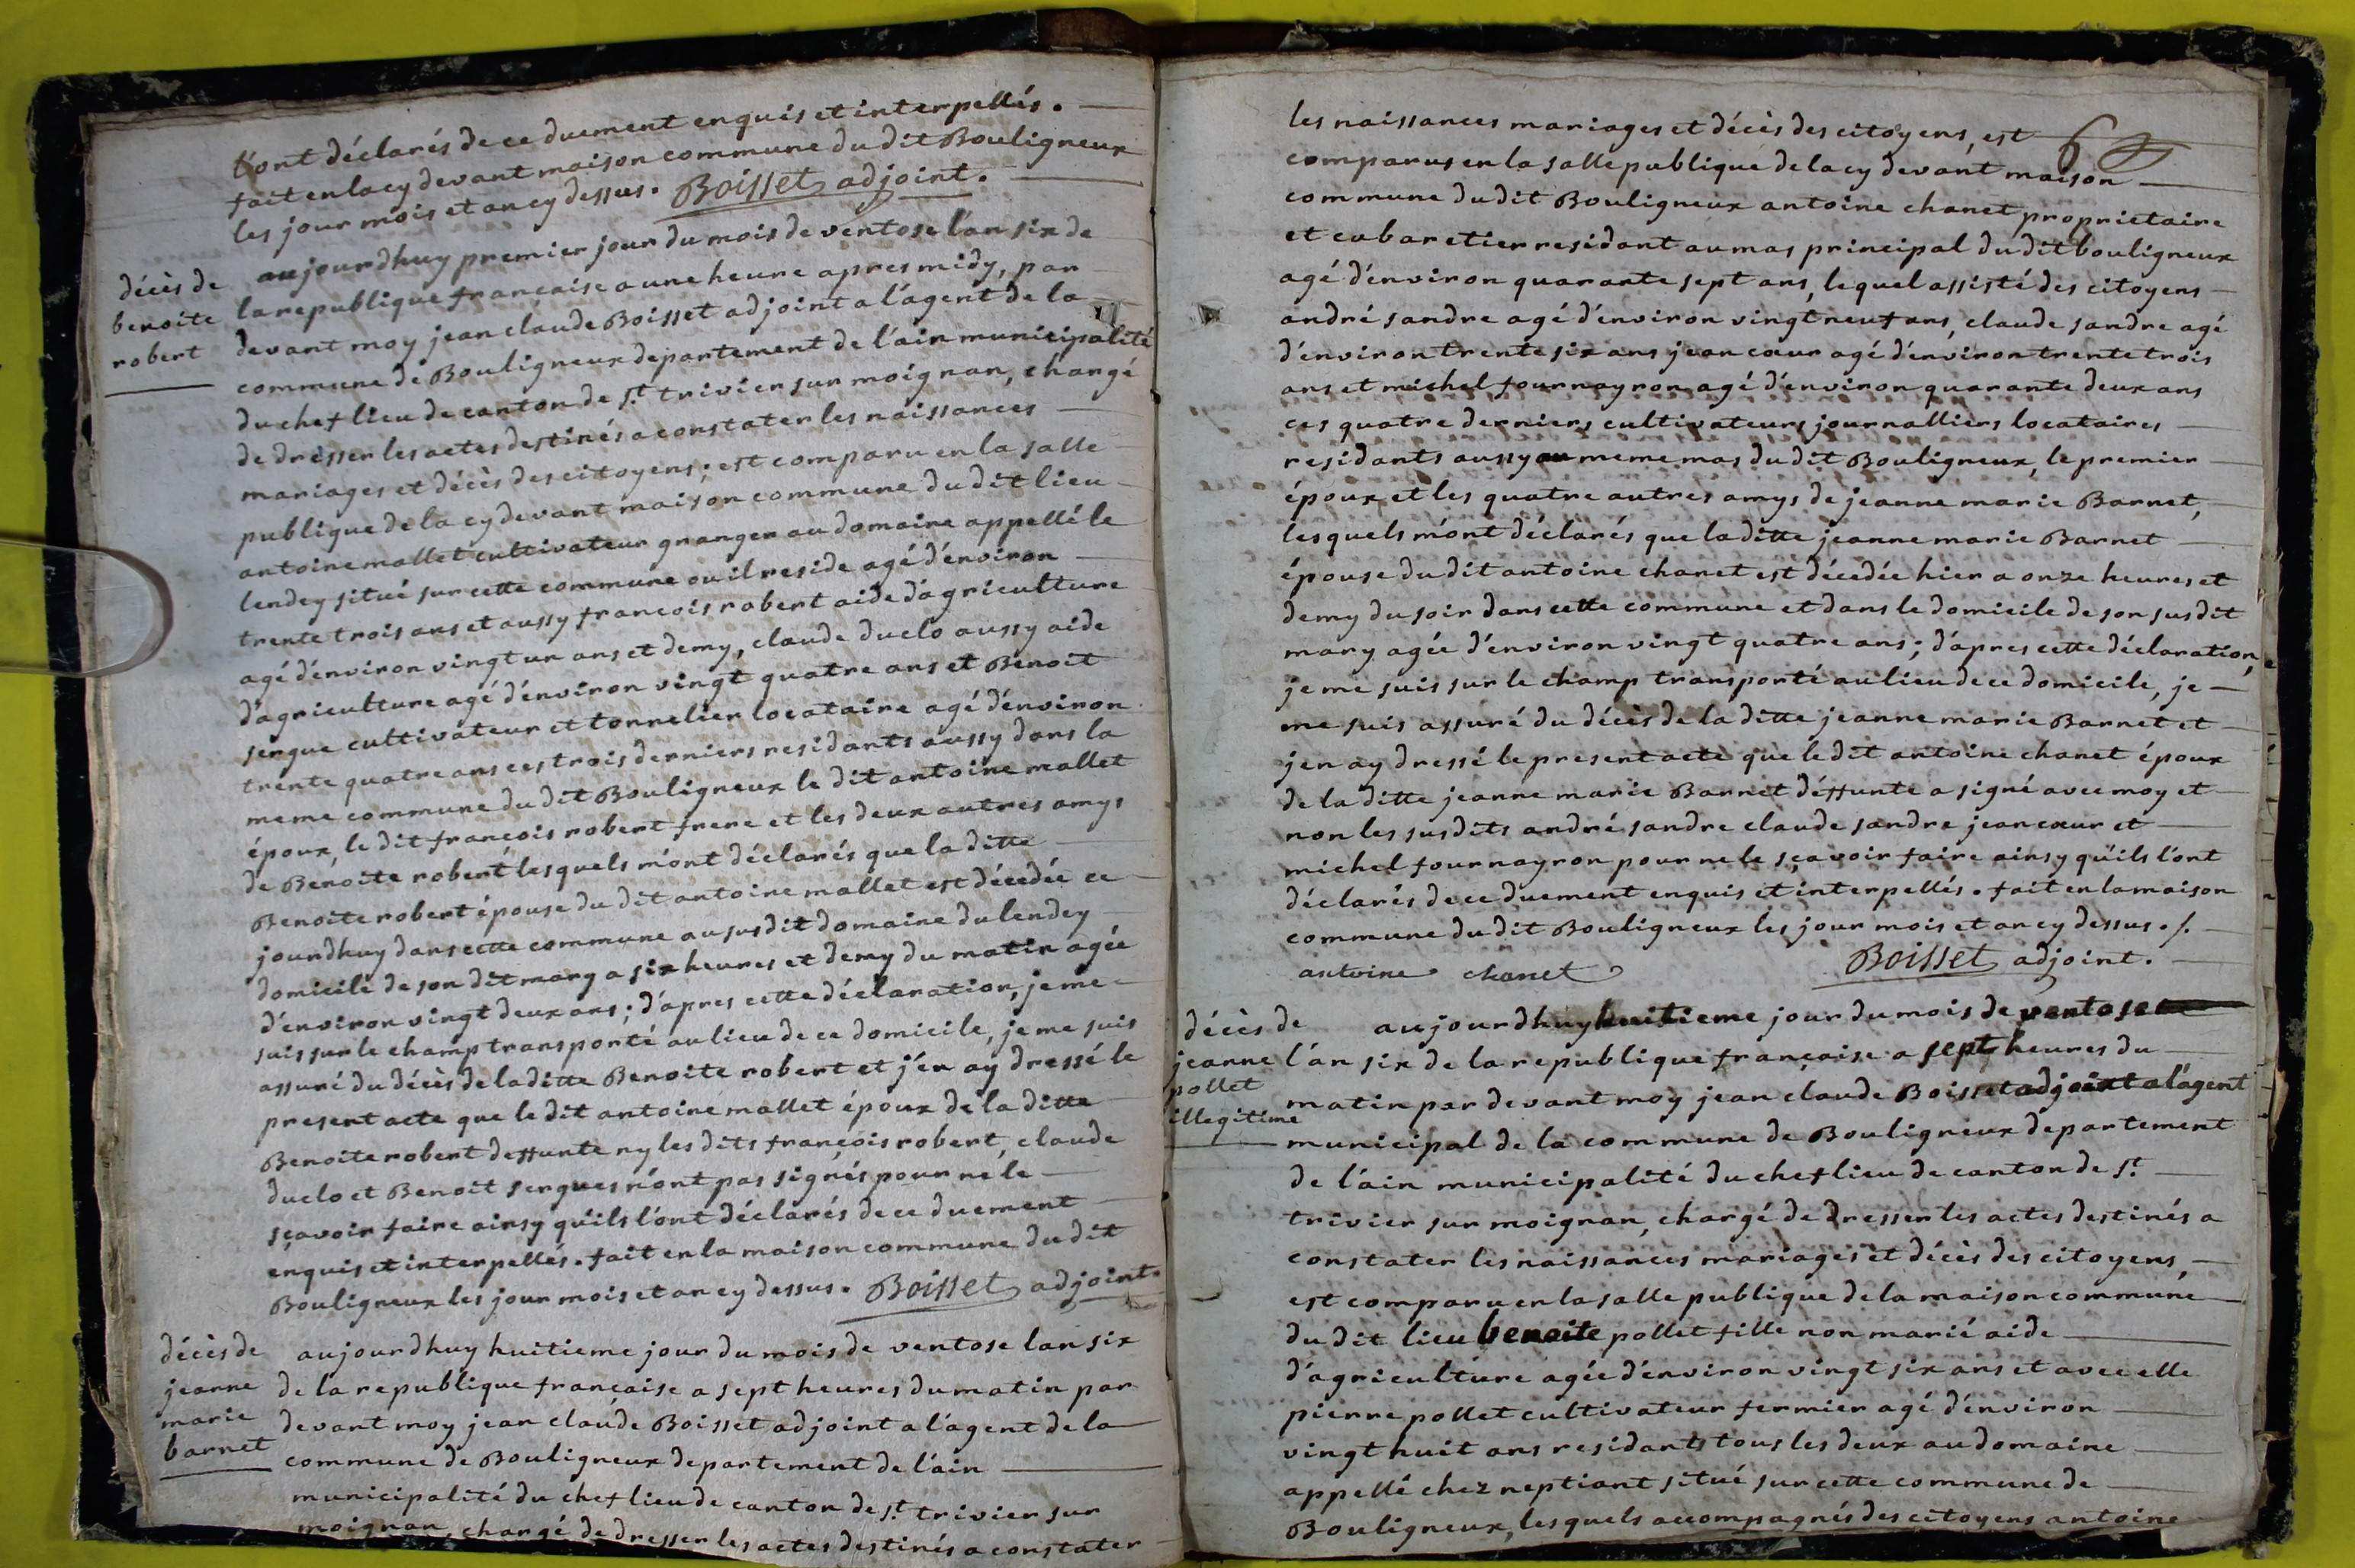 l'ont déclarés de ce duement enquis et interpellés.
fait en la cy devant maison commune du dit Bouligneux
les jour mois et an cy dessus. Boisset adjoint.
décès de
benoite
robert
aujourdhuy premier jour du mois de ventose l'an six de
la republique française a une heure apres midy, par
devant moy jean claude Boisset adjoint a l'agent de la
commune de Bouligneux departement de l'ain municipalité
du chef lieu de canton de st. trivier sur moignan, chargé
de dresser les actes destinés a constater les naissances
mariages et décès des citoyens; est comparu en la salle
publique de la cy devant maison commune du dit lieu
antoine mallet cultivateur granger au domaine appellé le
lendey situé sur cette commune ou il reside agé d'environ
trente trois ans et aussy françois robert aide d'agriculture
agé d'environ vingt un ans et demy, claude duclo aussy aide
d'agriculture agé d'environ vingt quatre ans et Benoit
sergue cultivateur et tonnelier locataire agé d'environ
trente quatre ans ces trois derniers residants aussy dans la
meme commune du dit Bouligneux le dit antoine mallet
époux, le dit françois robert frere et les deux autres amys
de Benoite robert lesquels m'ont déclarés que la ditte
Benoite robert épouse du dit antoine mallet est décedée ce
jourdhuy dans cette commune au susdit domaine du lendey
domicile de son dit mary a six heures et demy du matin agée
d'environ vingt deux ans; d'apres cette déclaration, je me
suis sur le champ transporté au lieu de ce domicile, je me suis
assuré du décès de la ditte Benoite robert et j'en ay dressé le
present acte que le dit antoine mallet époux de la ditte
Benoite robert deffunte ny les dits françois robert, claude
duclo et Benoit sergues n'ont pas signés pour ne le
sçavoir faire ainsy qu'ils l'ont déclarés de ce duement
enquis et interpellés. fait en la maison commune du dit
Bouligneux les jour mois et an cy dessus. Boisset adjoint.
décès de
jeanne
marie
barnet
aujourdhuy huitieme jour du mois de ventose lan six
de la republique française a sept heures du matin par
devant moy jean claude Boisset adjoint a l'agent de la
commune de Bouligneux departement de l'ain
municipalité du chef lieu de canton de st. trivier sur
moignan, chargé de dresser les actes destinés a constater
les naissances mariages et décès des citoyens, est
comparus en la salle publique de la cy devant maison
commune du dit Bouligneux antoine chanet proprietaire
et cabaretier residant au mas principal du dit bouligneux
agé d'environ quarante sept ans, lequel assisté des citoyens
andré sandre agé d'environ vingt neuf ans, claude sandre agé
d'environ trente six ans jean cœur agé d'environ trente trois
ans et michel fournayron agé d'environ quarante deux ans
ces quatre derniers cultivateurs journalliers locataires
residants aussy au meme mas du dit Bouligneux, le premier
époux et les quatre autres amys de jeanne marie Barnet,
lesquels m'ont déclarés que la ditte jeanne marie Barnet
épouse du dit antoine chanet est décedée hier a onze heures et
demy du soir dans cette commune et dans le domicile de son susdit
mary agée d'environ vingt quatre ans; d'apres cette déclaration,
je me suis sur le champ transporté au lieu de ce domicile, je
me suis assuré du décès de la ditte jeanne marie Barnet et
jen ay dressé le present acte que le dit antoine chanet époux
de la ditte jeanne marie Barnet déffunte a signé avec moy et
non les susdits andré sandre claude sandre jean cœur et
michel fournayron pour ne le sçavoir faire ainsy qu'ils l'ont
déclarés de ce duement enquis et interpellés. fait en la maison
commune du dit Bouligneux les jour mois et an cy dessus./.
antoine chanet Boisset adjoint.
décès de
jeanne
pollet
illegitime
aujourdhuy huitieme jour du mois de ventose
l'an six de la republique française a sept heures du
matin par devant moy jean claude Boisset adjoint a l'agent
municipal de la commune de Bouligneux departement
de l'ain municipalité du chef lieu de canton de st.
trivier sur moignan, chargé de dresser les actes destinés a
constater les naissances mariages et décès des citoyens,
est comparu en la salle publique de la maison commune
du dit lieu benoite pollet fille non marié aide
d'agriculture agée d'environ vingt six ans et avec elle
pierre pollet cultivateur fermier agé d'environ
vingt huit ans residants tous les deux au domaine
appellé chez neptiant situé sur cette commune de
Bouligneux, lesquels accompagnés des citoyens antoine